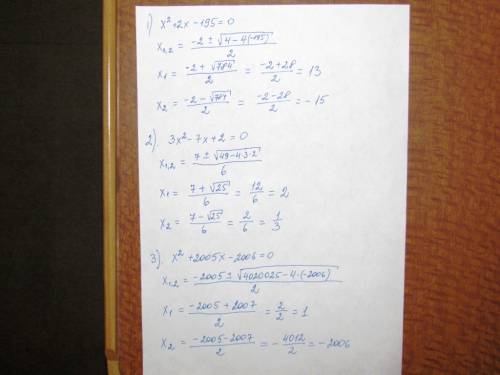 1) x² + 2x - 195 = 0
x₁,₂ = (-2 ± √(4 - 4(-195)))/2
x₁ = (-2 + √784)/2 = (-2 + 28)/2 = 13
x₂ = (-2 - √784)/2 = (-2 - 28)/2 = -15
2). 3x² - 7x + 2 = 0
x₁,₂ = (7 ± √(49 - 4·3·2))/6
x₁ = (7 + √25)/6 = 12/6 = 2
x₂ = (7 - √25)/6 = 2/6 = 1/3
3). x² + 2005x - 2006 = 0
x₁,₂ = (-2005 ± √(4020025 - 4·(-2006)))/2
x₁ = (-2005 + 2007)/2 = 2/2 = 1
x₂ = (-2005 - 2007)/2 = -4012/2 = -2006